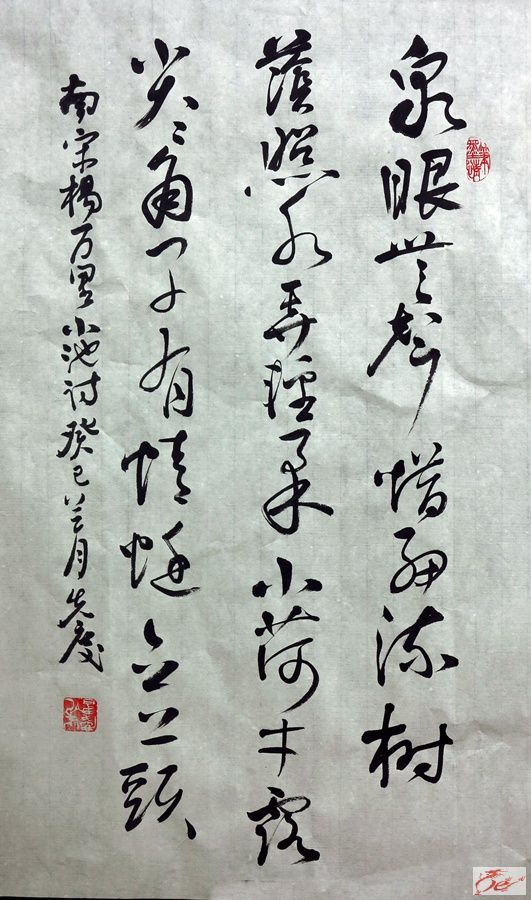 泉眼無聲惜細流樹
蔭照水弄輕柔小荷才露
尖〻角早有蜻蜓立上頭
南宋楊万里小池诗癸巳兰月先